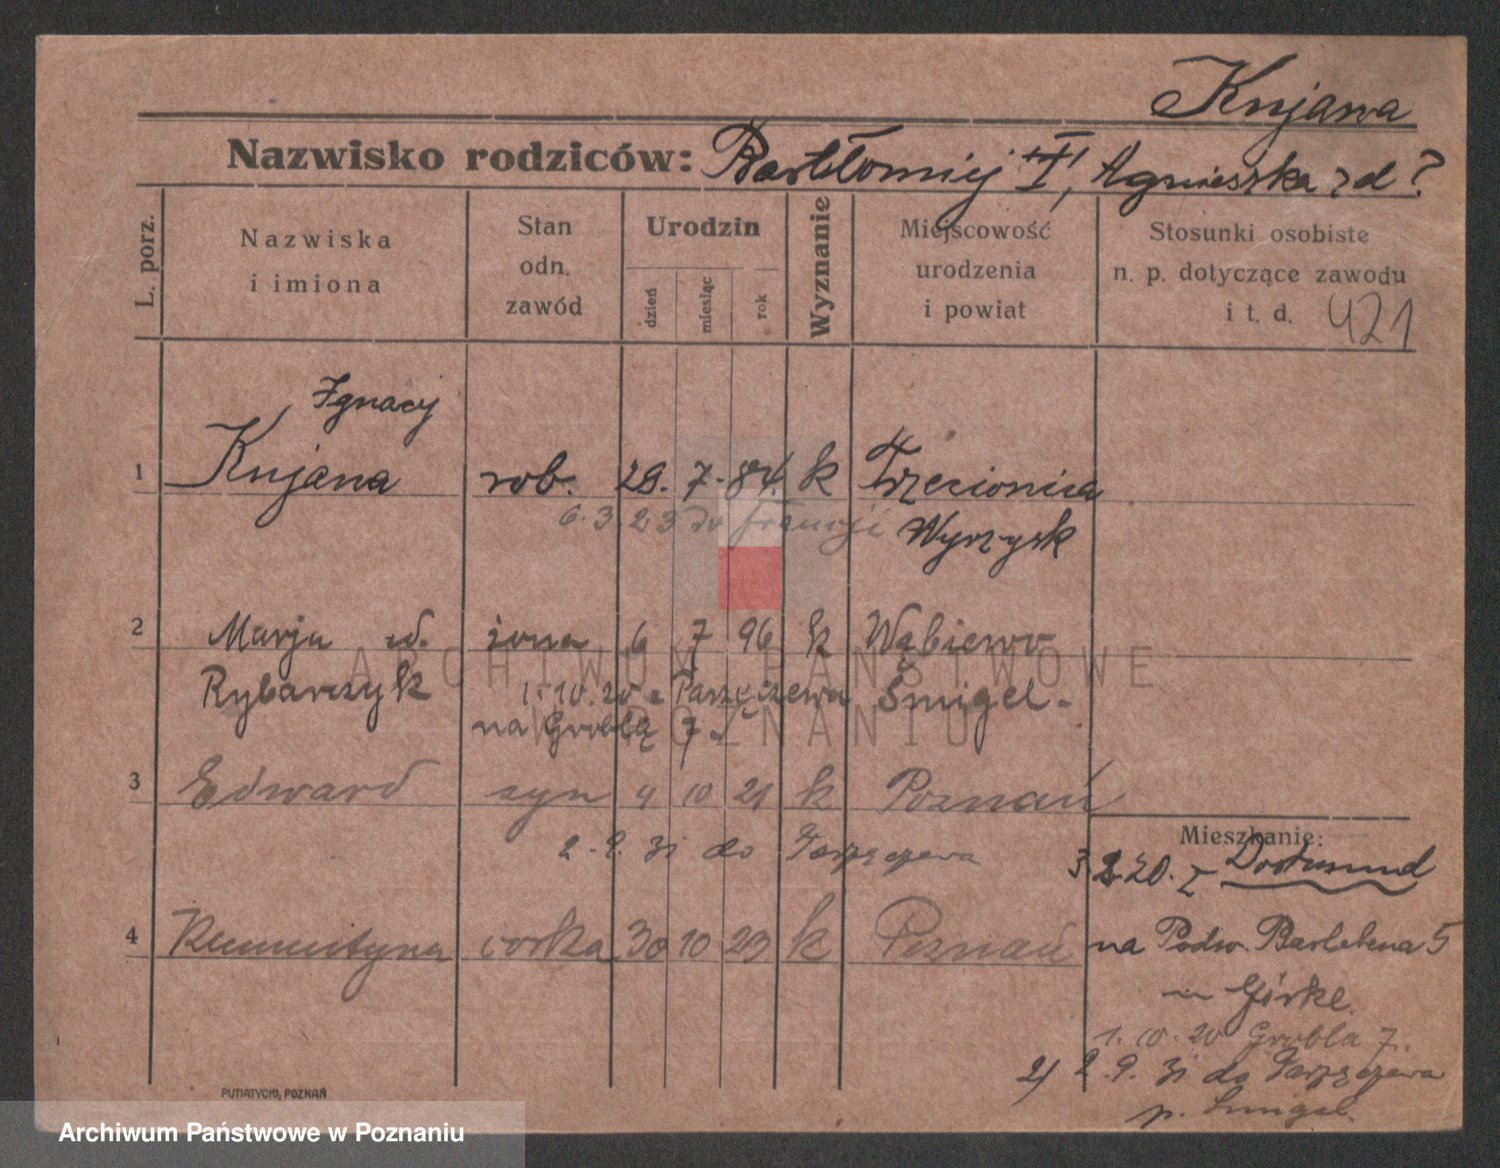 Kujawa
Nazwisko rodziców: Bartłomiej I, Agnieszka z d?
L. porz.
Nazwiska
i imiona
Stan
odn.
zawód
Urodzin
dzień
miesiąc
rok
Wyznanie
Miejscowość
urodzenia
i powiat
Stosunki osobiste
n. p. dotyczące zawodu
i t. d. 421
Ignacy
1 Kujawa rob. 29. 7. 84. k Trzeciewnica
6.3.23 do Francji Wyrzysk
2 Marja ż. żona 6 7 96 k
Rybarczyk 1.10.20 z Parzęczewa Śmigel
na Groblę 7
3 Edward syn 4 10 21 k Poznań
2.9.31 do Parzęczewa
4 Klementyna córka 30 10 23 k Poznań
Mieszkanie:
20. z Dortmund
na Podw. 5
u Górke
1.10.20 Grobla 7.
2/ 2.9.31 do Parzęczewa
p. Śmigel.
PUTIATYCKI, POZNAŃ
ARCHIWUM PAŃSTWOWE
W POZNANIU
Archiwum Państwowe w Poznaniu